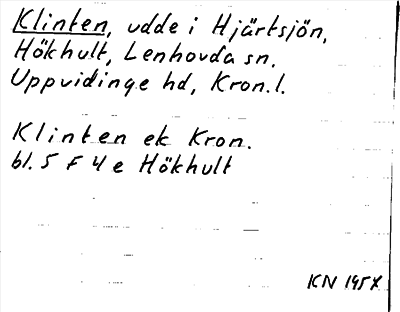 Klinten, udde i Hjärtsjön,
Hökhult, Lenhovda sn,
Uppvidinge hd, Kron.l.
Klinten ek Kron.
bl. 5 F 4 e Hökhult
KN